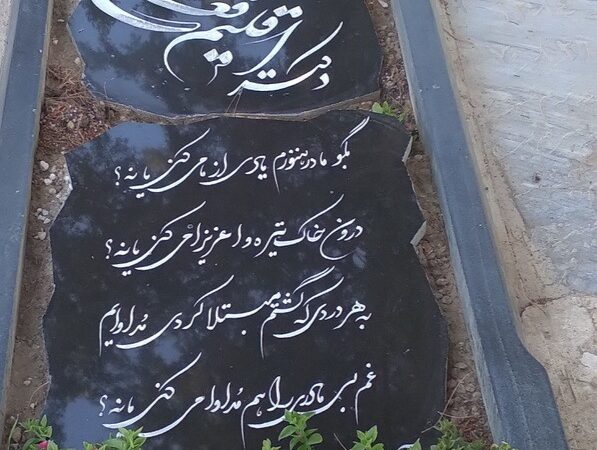 دکتر
بگو مادر هنوزم یادی از ما می کنی یا نه؟
درون خاک تیره وا عزیزا می کنی یا نه؟
به هر دردی که گشتم مبتلا کردی مداوایم
غم بی مادری را هم مداوا می کنی یا نه؟